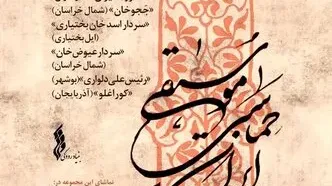 «ججوخان» (شمال خراسان)
«سردار اسدخان بختیاری»
(ایل بختیاری)
«سردار عیوض‌خان»
(شمال خراسان)
«رئیس‌علی دلواری» (بوشهر)
«کوراغلو» (آذربایجان)
موسیقی
حماسی
ایران
تماشای این مجموعه در: